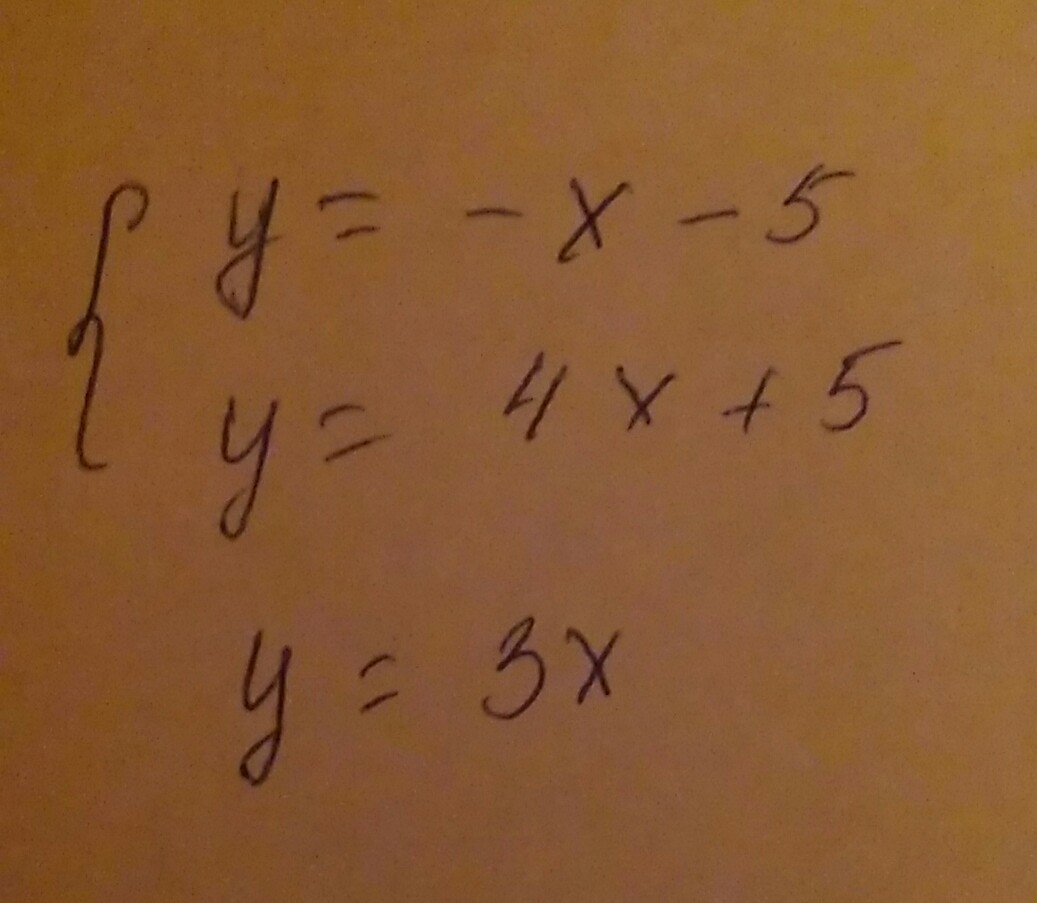 { y = - x - 5
y = 4x + 5
y = 3x